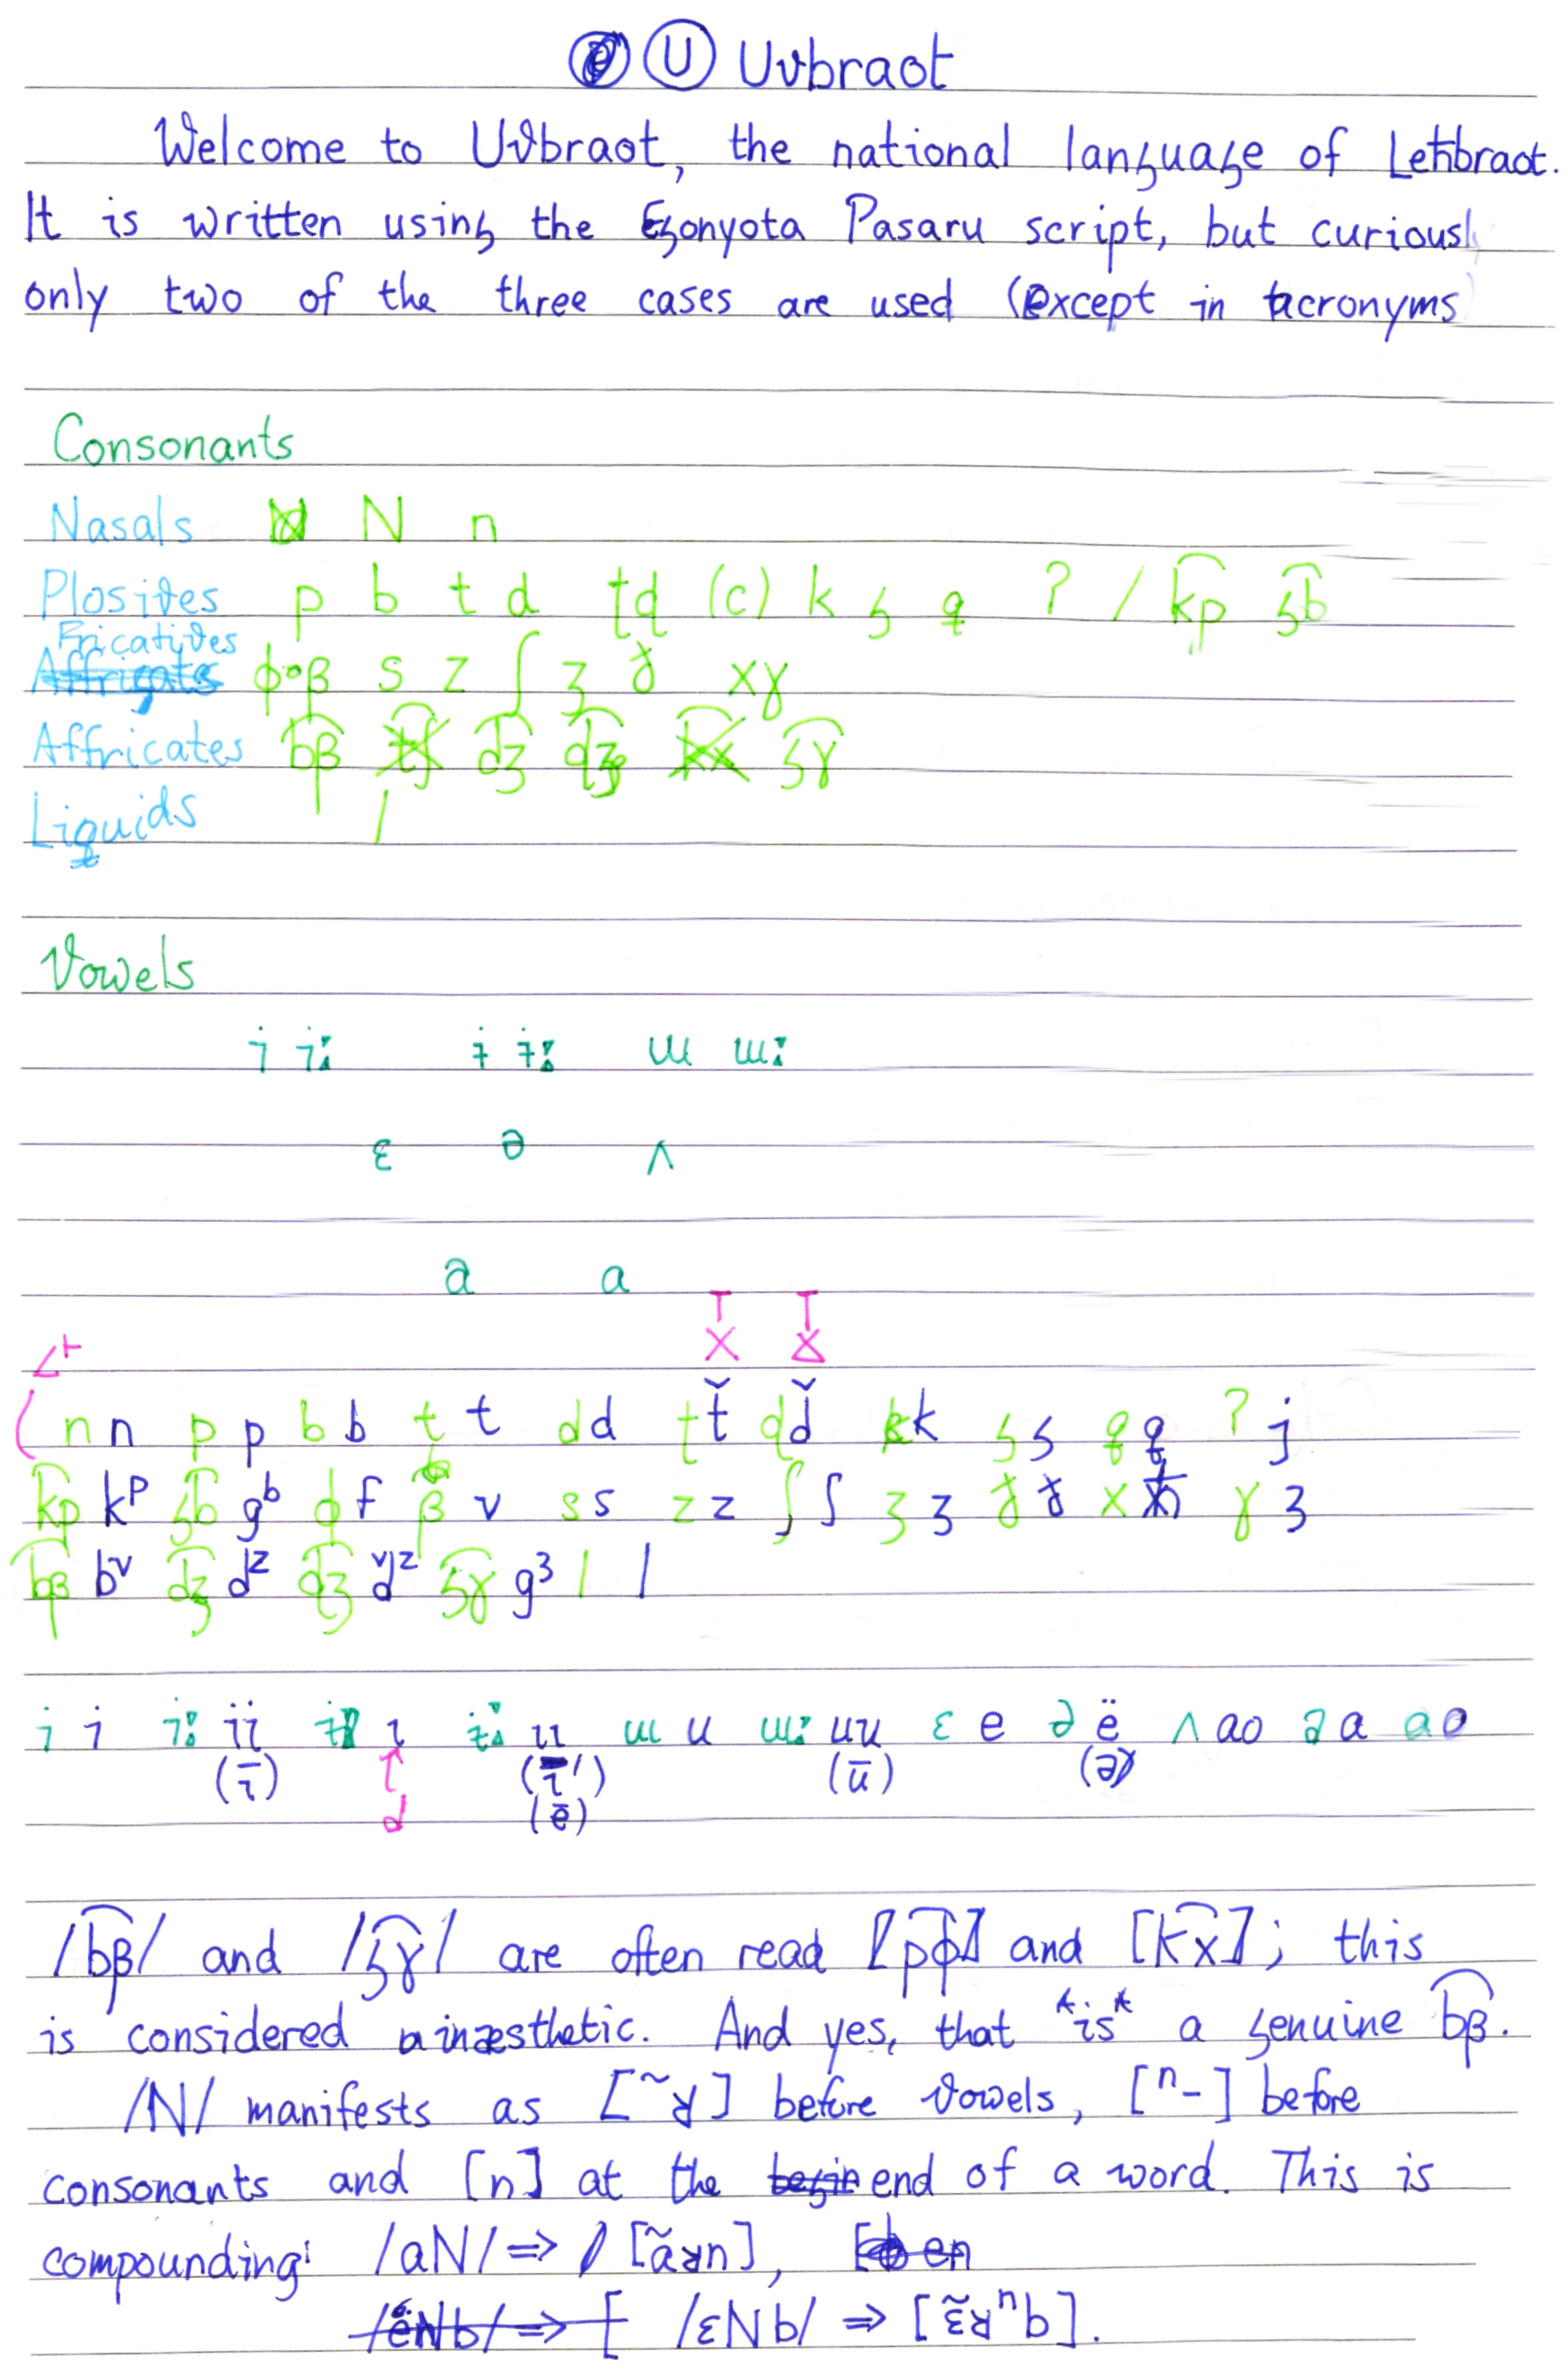 Ⓤ Uvbraot
Welcome to Uvbraot, the national language of Letibraot.
It is written using the Egonyota Pasaru script, but curiousl
only two of the three cases are used (except in acronyms
Consonants
Nasals N n
Plosives p b t d ƫ ɖ (c) k g q ? / k͡p g͡b
Fricatives ɸ β s z ʃ ʒ ɣ
Affricates b͡β d͡ʒ g͡ɣ
Liquids l
Vowels
i i: ɨ ɨ: ɯ ɯ:
ɛ ə ʌ
a ɑ
n n p p b b t t d d ƫ ť ɖ ď k k g g q q ? j
k͡p kᵖ g͡b gᵇ ɸ f β v s s z z ʃ ʃ ʒ ʒ x ɣ ʒ
b͡β bᵛ dᶻ ďᶻ g͡ɣ g³ l l
i i i: ii ɨ ı ɨ: ıı ɯ u ɯ: uu ɛ e ə ë ʌ ao a a ɑ o
(ī) (ū)
(ē)
/b͡β/ and /g͡ɣ/ are often read [p͡ɸ] and [k͡x]; this
is considered inæsthetic. And yes, that *is* a genuine b͡β.
/N/ manifests as [~ʁ] before vowels, [ⁿ-] before
consonants and [n] at the end of a word. This is
compounding: /aN/ ⇒ [ãʁn],
/ɛNb/ ⇒ [ɛ̃ʁⁿb].